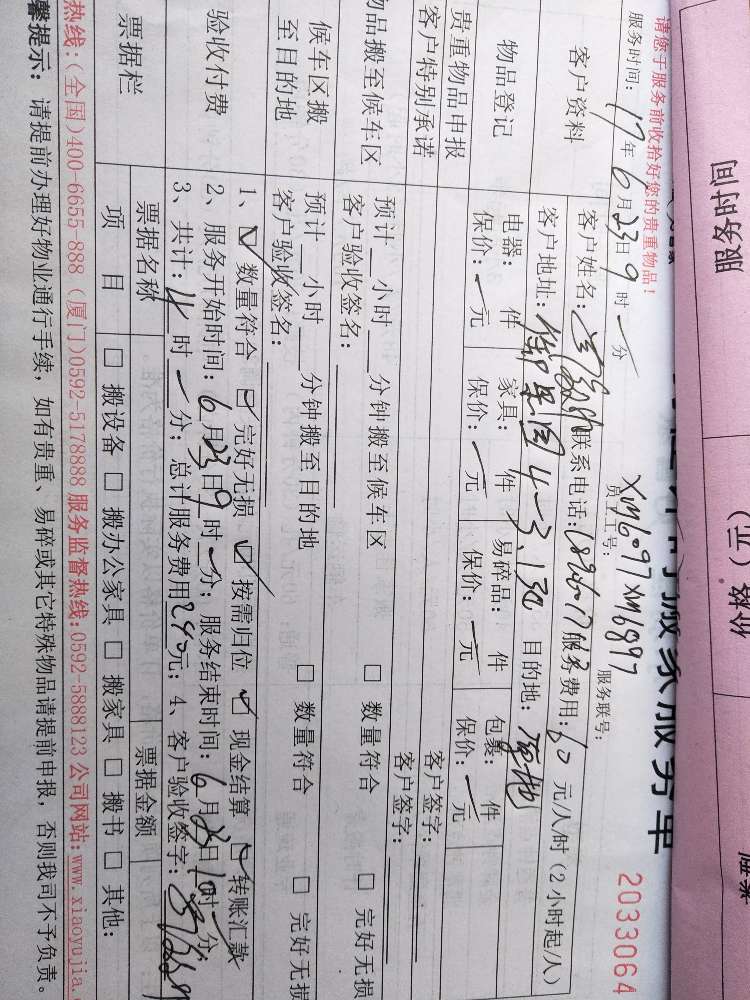 服务时间
价格(元)
搬家服务单
2033064
请您于服务前收拾好您的贵重物品!
员工工号: XM6097 XM6897 服务联号:
服务时间: 17年6月23日9时一分
客户资料
客户姓名: 联系电话: 服务费用: 60 元/人/时(2小时起/人)
客户地址: 4-3,130 目的地:
物品登记
电器: 件 家具: 件 易碎品: 件 包裹: 件
保价: 一元 保价: 一元 保价: 一元 保价: 一元
贵重物品申报 客户签字:
客户特别承诺 客户签字:
物品搬至候车区
预计__小时__分钟搬至候车区 □ 数量符合 □ 完好无损
客户验收签名:
候车区搬至目的地
预计__小时__分钟搬至目的地 □ 数量符合 □ 完好无损
客户验收签名:
验收付费
1、☑ 数量符合 ☑ 完好无损 ☑ 按需归位 ☑ 现金结算 ☑ 转账汇款
2、服务开始时间: 6月23日9时一分; 服务结束时间: 6月23日 时 分
3、共计: 4时一分; 总计服务费用240元; 4、客户验收签字:
票据栏
票据名称 票据金额
项目 □ 搬设备 □ 搬办公家具 □ 搬家具 □ 搬书 □ 其他:
热线:(全国)400-6655 888 (厦门)0592-5178888 服务监督热线:0592-5888123 公司网站:www.xiaoyujia.
馨提示: 请提前办理好物业通行手续，如有贵重、易碎或其它特殊物品请提前申报，否则我司不予负责。